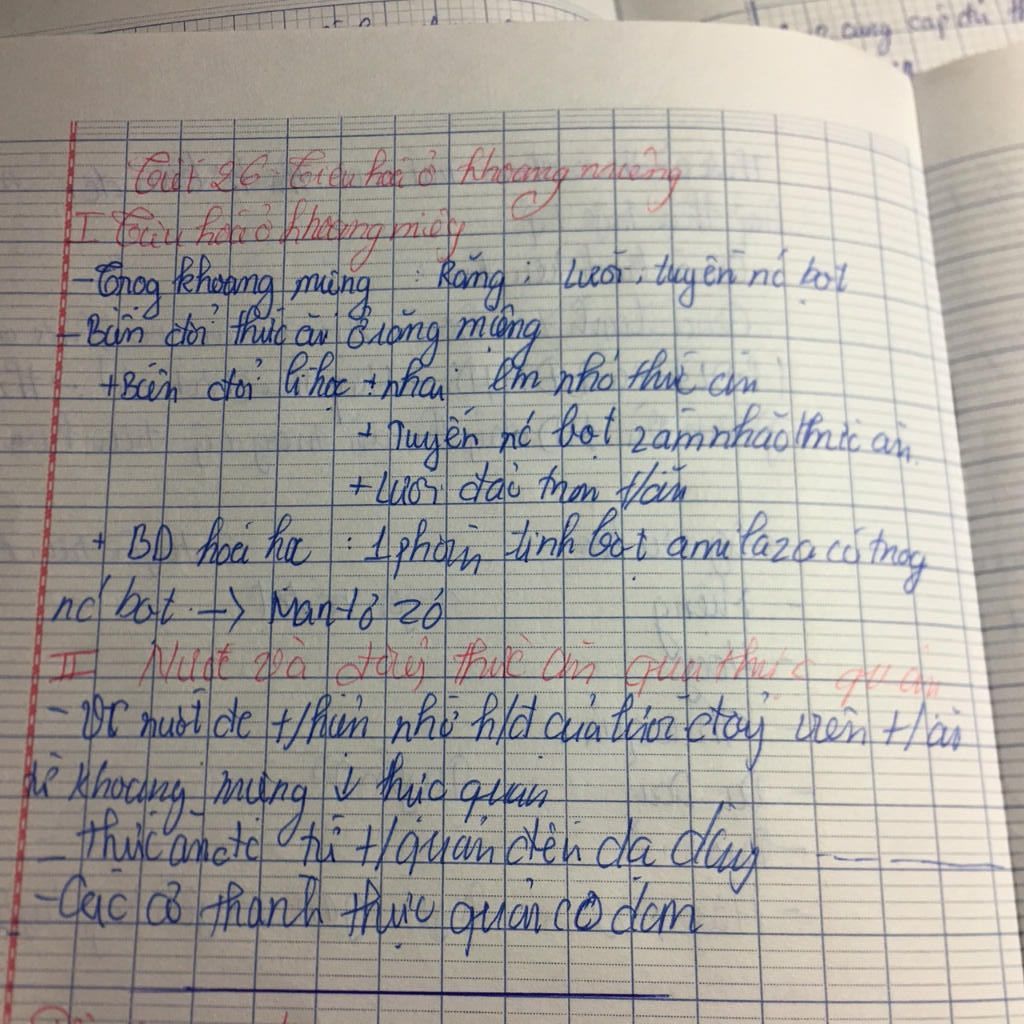 cung cấp đủ
Tiết 26 Tiêu hoá ở khoang miệng
I Tiêu hoá ở khoang miệng
- Trog khoang miệng : Răng ; Lưỡi, tuyến nc bọt
- Biến đổi thức ăn ở miệng
+ Biến đổi lí học + nhai làm nhỏ thức ăn
+ Tuyến nc bọt làm nhão thức ăn
+ Lưỡi đảo trộn t/ăn
+ BD hoá học : 1 phần tinh bột amilaza có trog
nc bọt → Mantôzơ
II Nuốt và đẩy thức ăn qua thực quản
- nuốt nhờ h/đ của lưỡi đẩy viên t/ăn
từ khoang miệng ↓ thực quản
- thức ăn từ t/quản đến dạ dày
- Các cơ thành thực quản co dãn